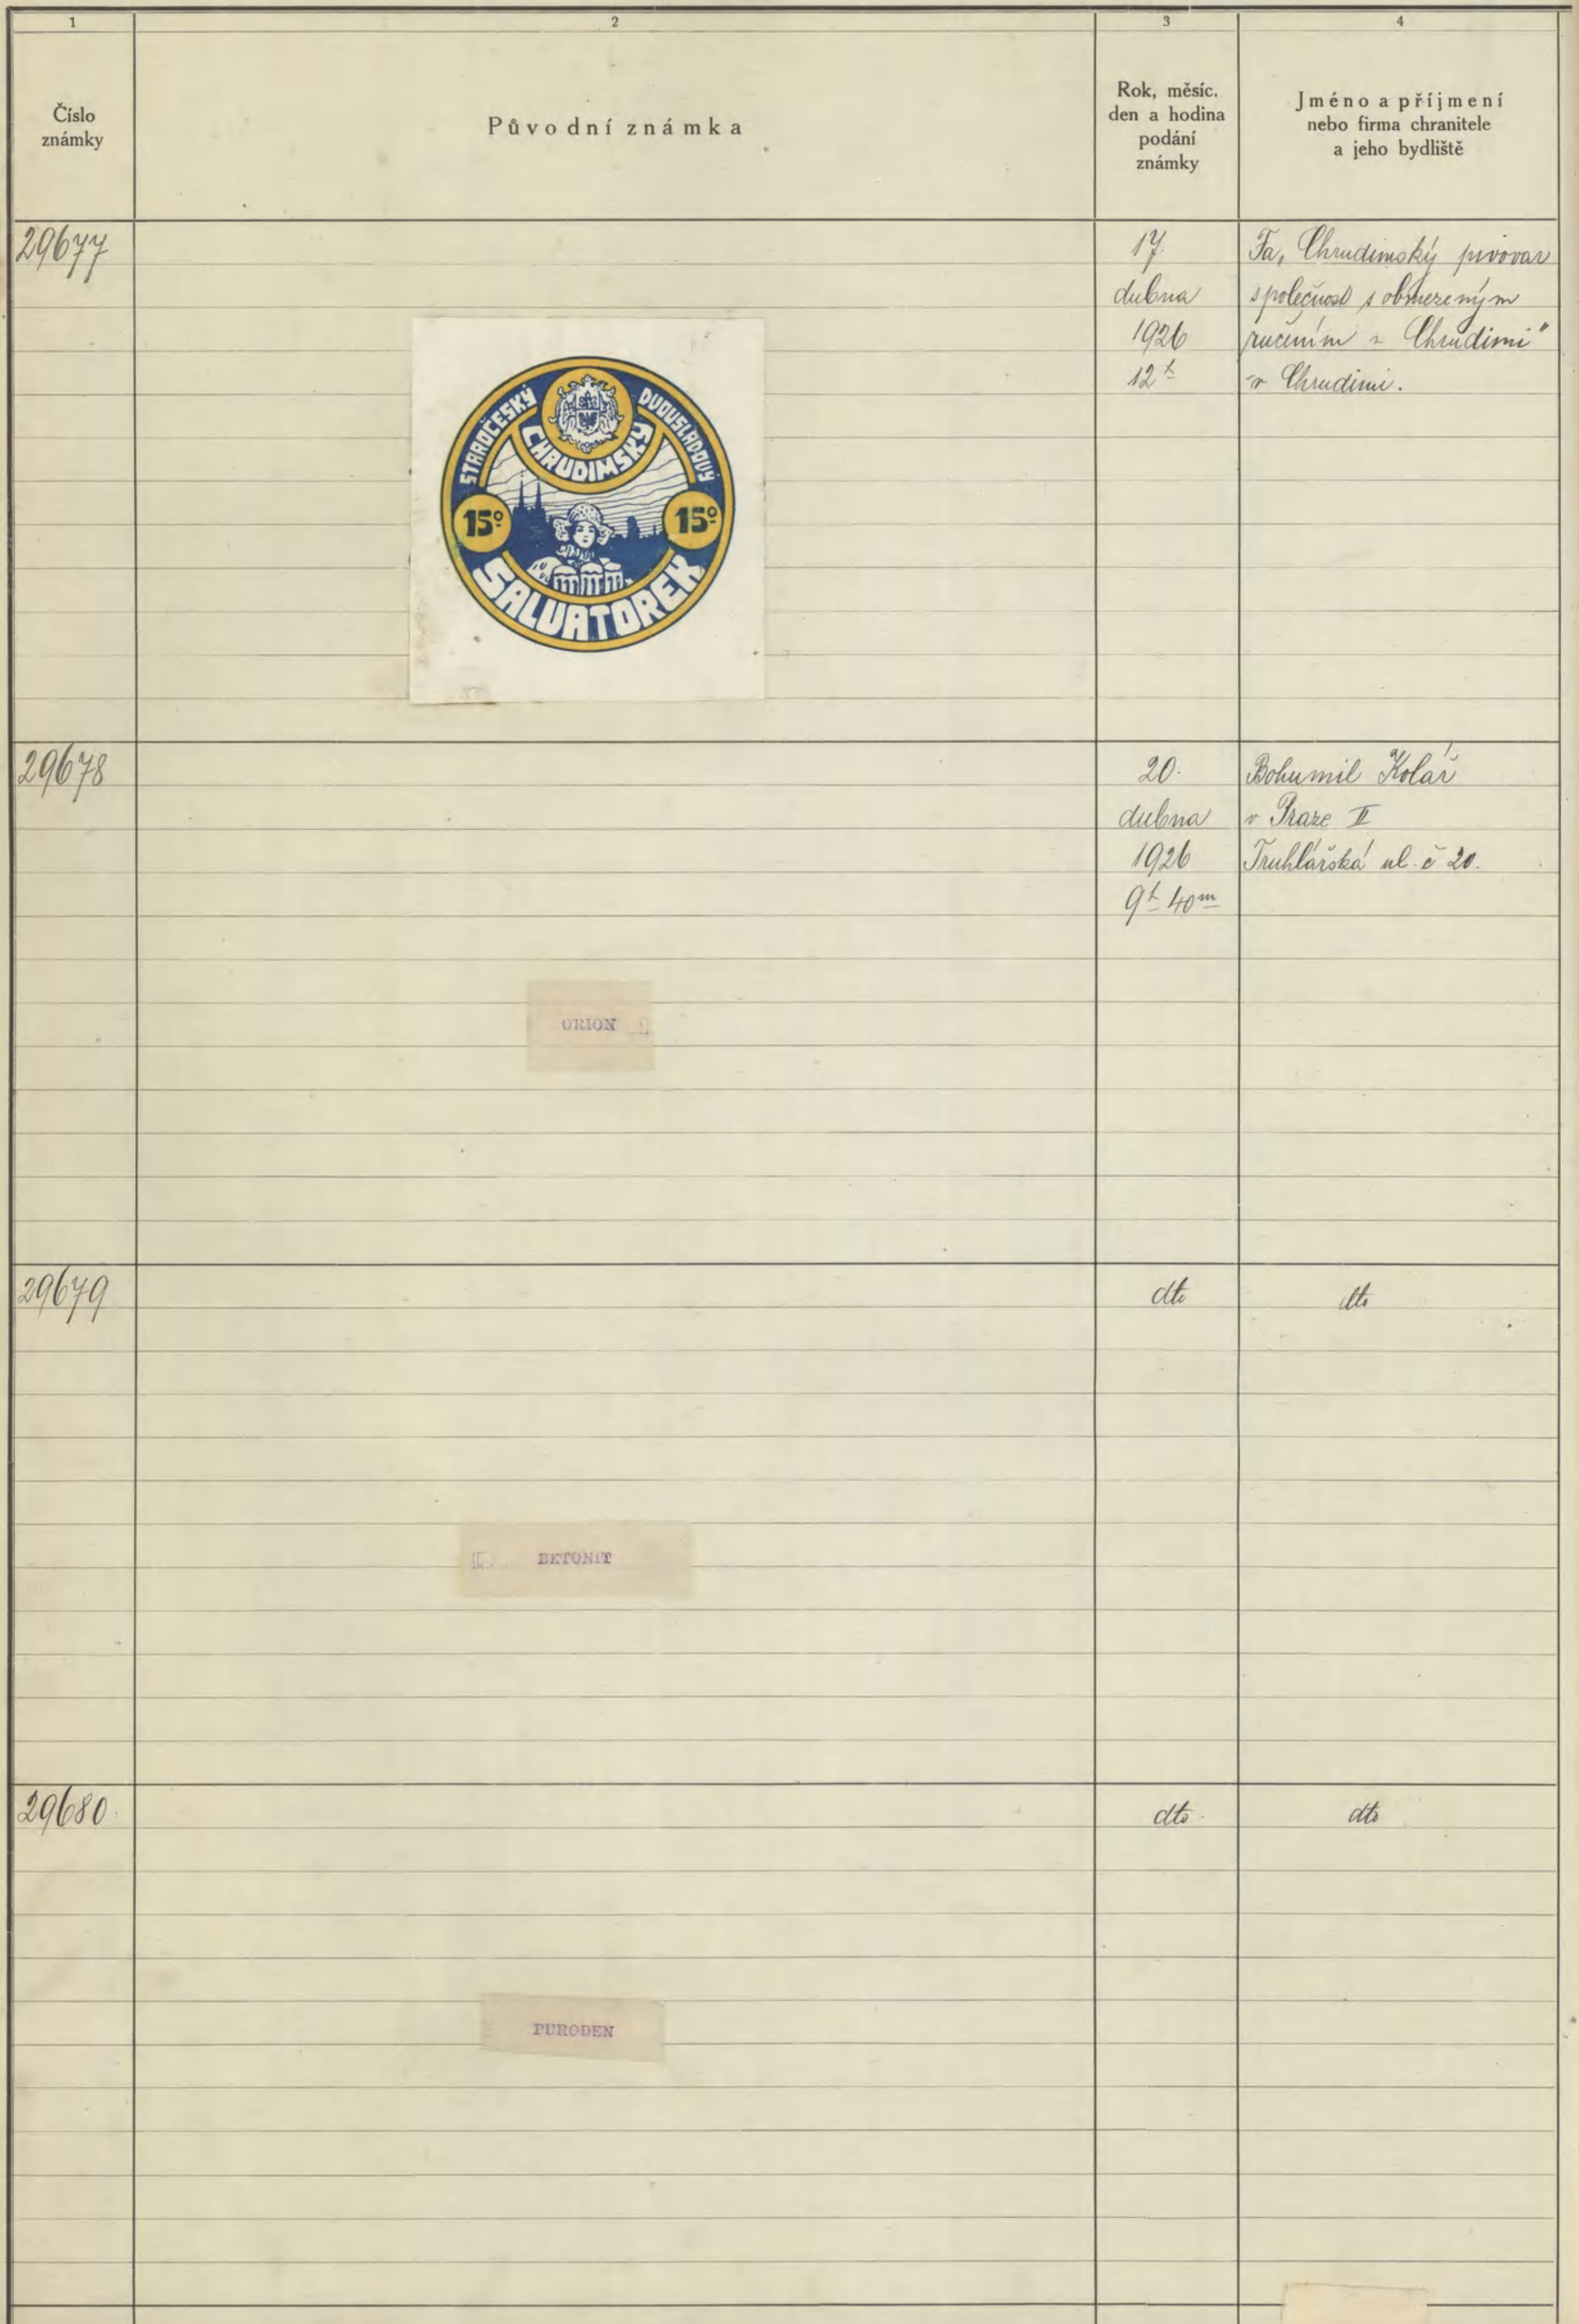 1
2
3
4
Číslo
známky
Původní známka
Rok, měsíc,
den a hodina
podání
známky
Jméno a příjmení
nebo firma chranitele
a jeho bydliště
29677
STAROČESKÝ
DVOUSLADOVÝ
CHRUDIMSKÝ
15º
15º
SALVATOREK
17.
dubna
1926
12 h
Fa „Chrudimský pivovar
společnost s obmezeným
ručením v Chrudimi"
v Chrudimi.
29678
ORION
20.
dubna
1926
9 h 40 m
Bohumil Kolář
v Praze II
Truhlářská ul. č 20.
29679
BETONIT
dto
dto
29680
PURODEN
dto
dto